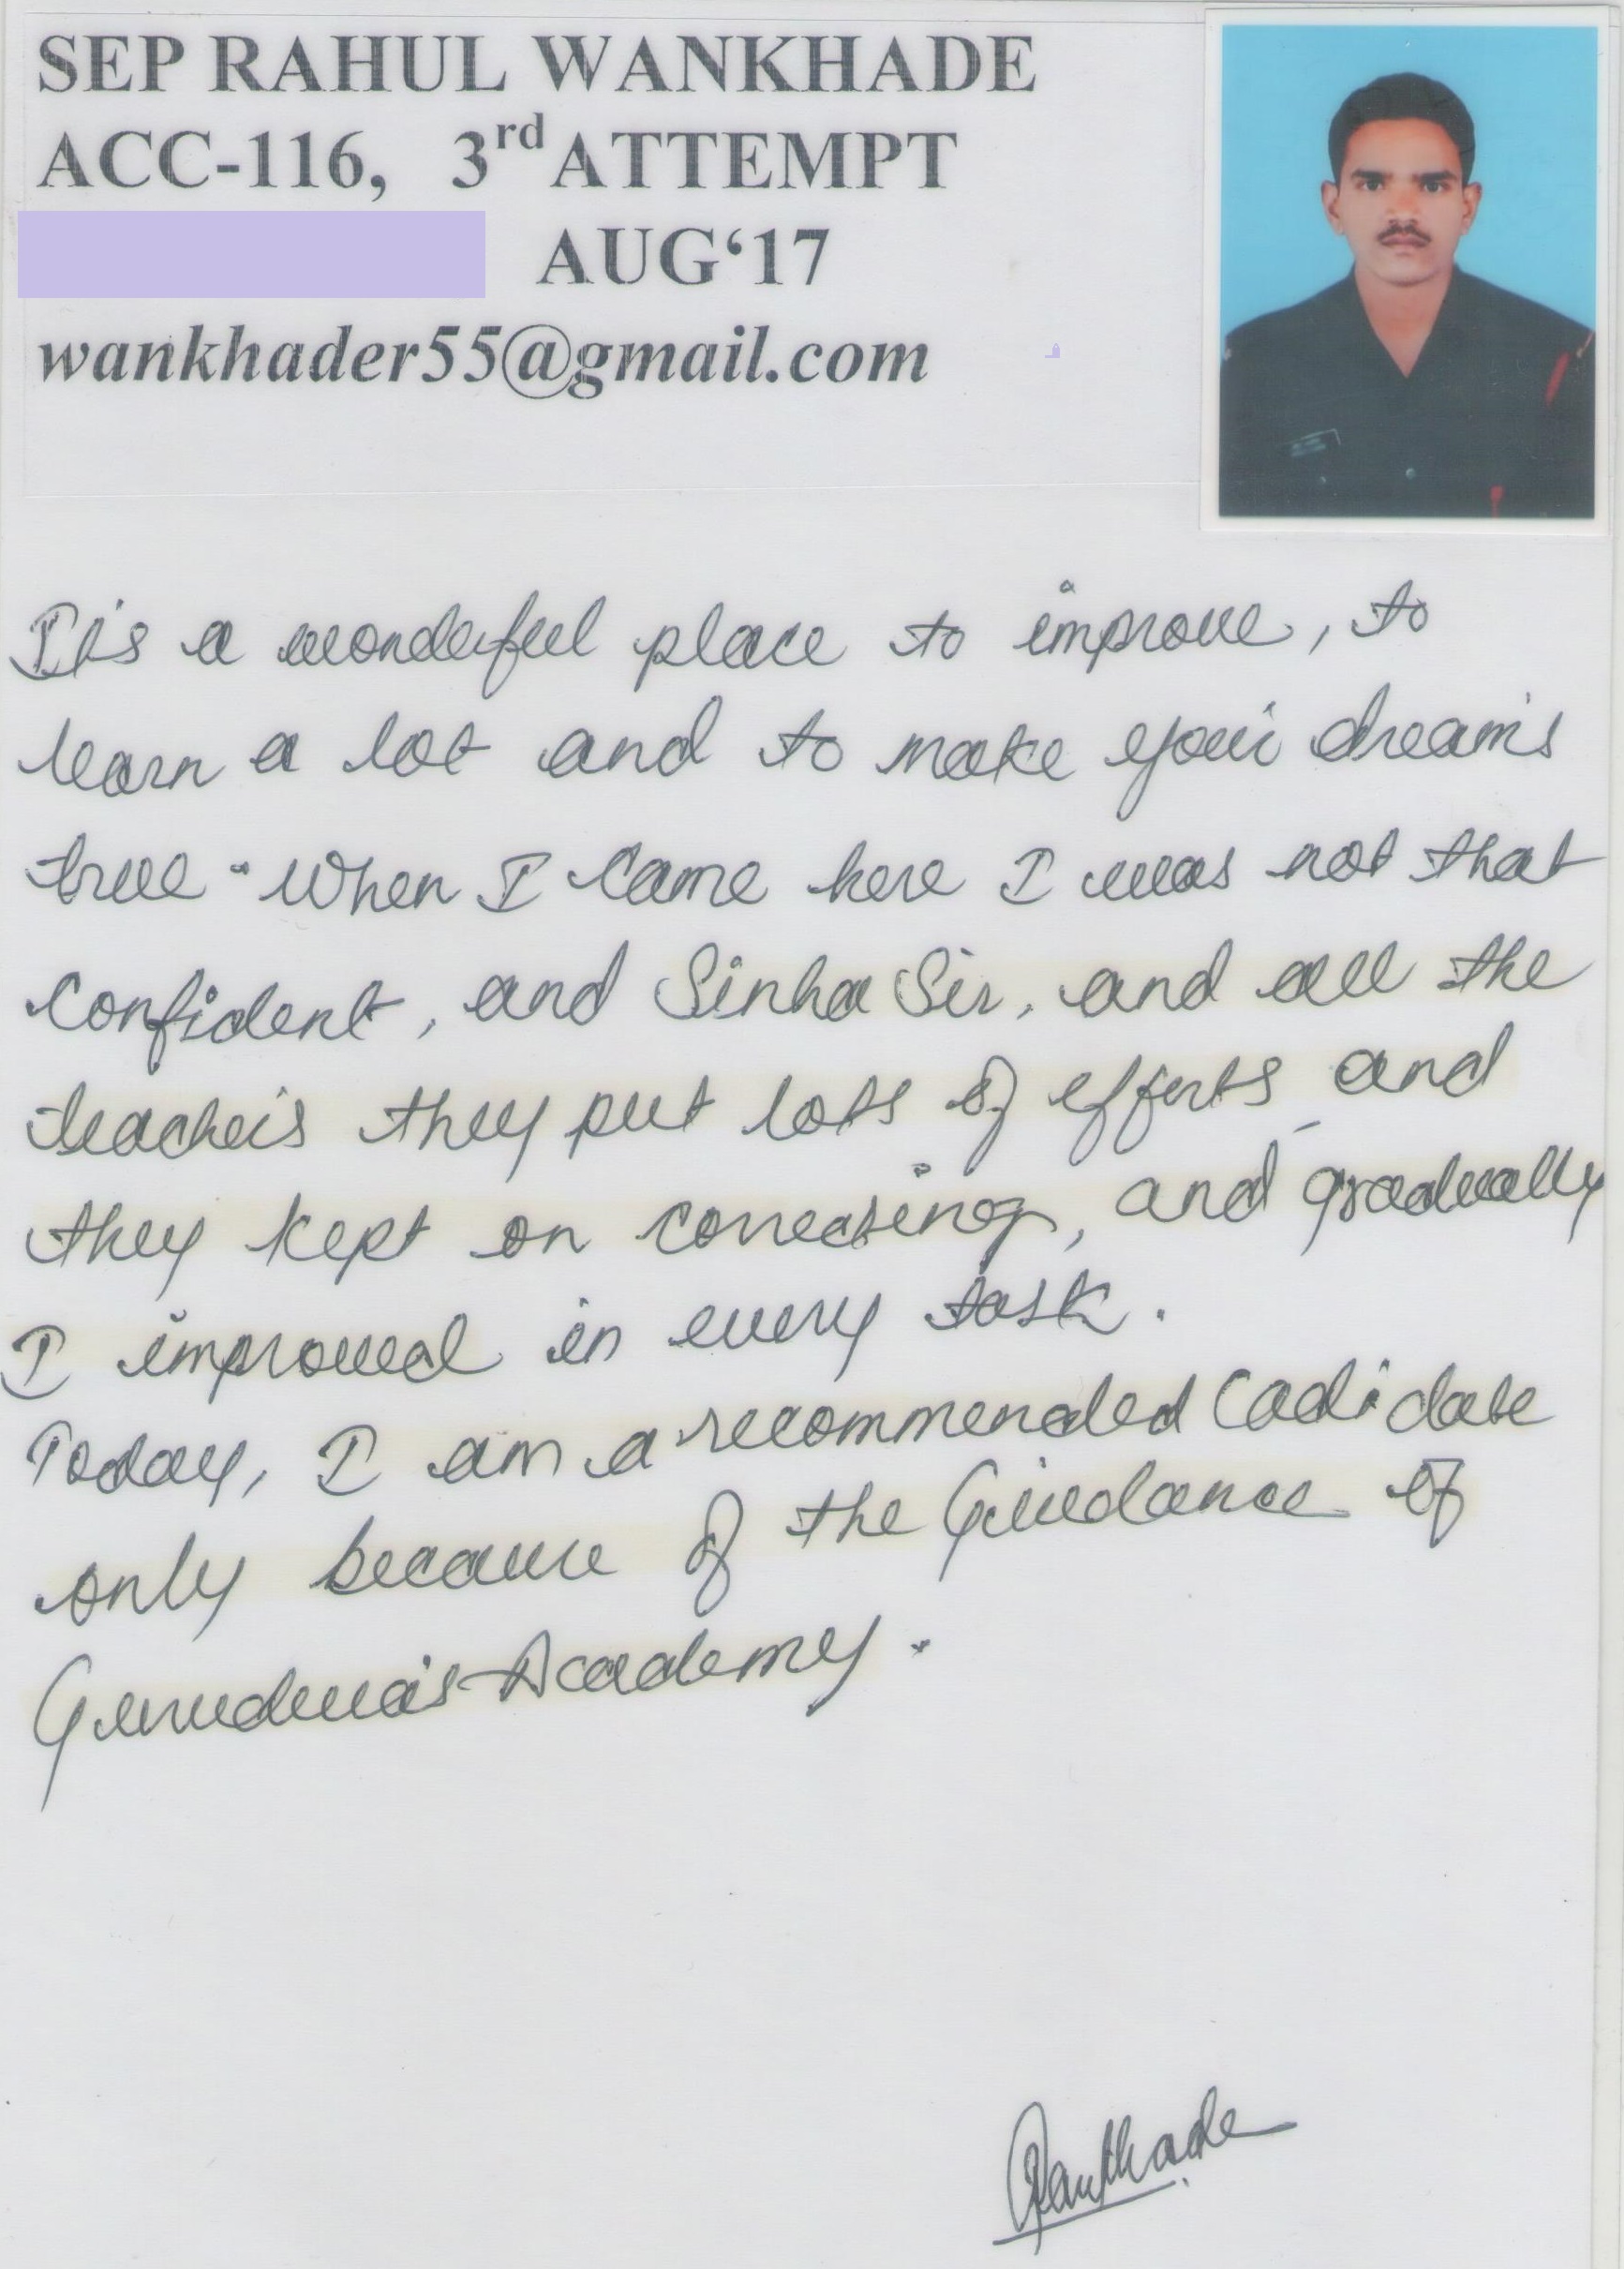 SEP RAHUL WANKHADE
ACC-116, 3rd ATTEMPT
AUG‘17
wankhader55@gmail.com
It's a wonderful place to improve, to
learn a lot and to make your dreams
true. When I came here I was not that
confident, and Sinha Sir, and all the
teachers they put lots of efforts and
they kept on correcting, and gradually
I improved in every task.
Today, I am a recommended Cadidate
only because of the Guidance of
Gurudwa's Academy.
Wankhade